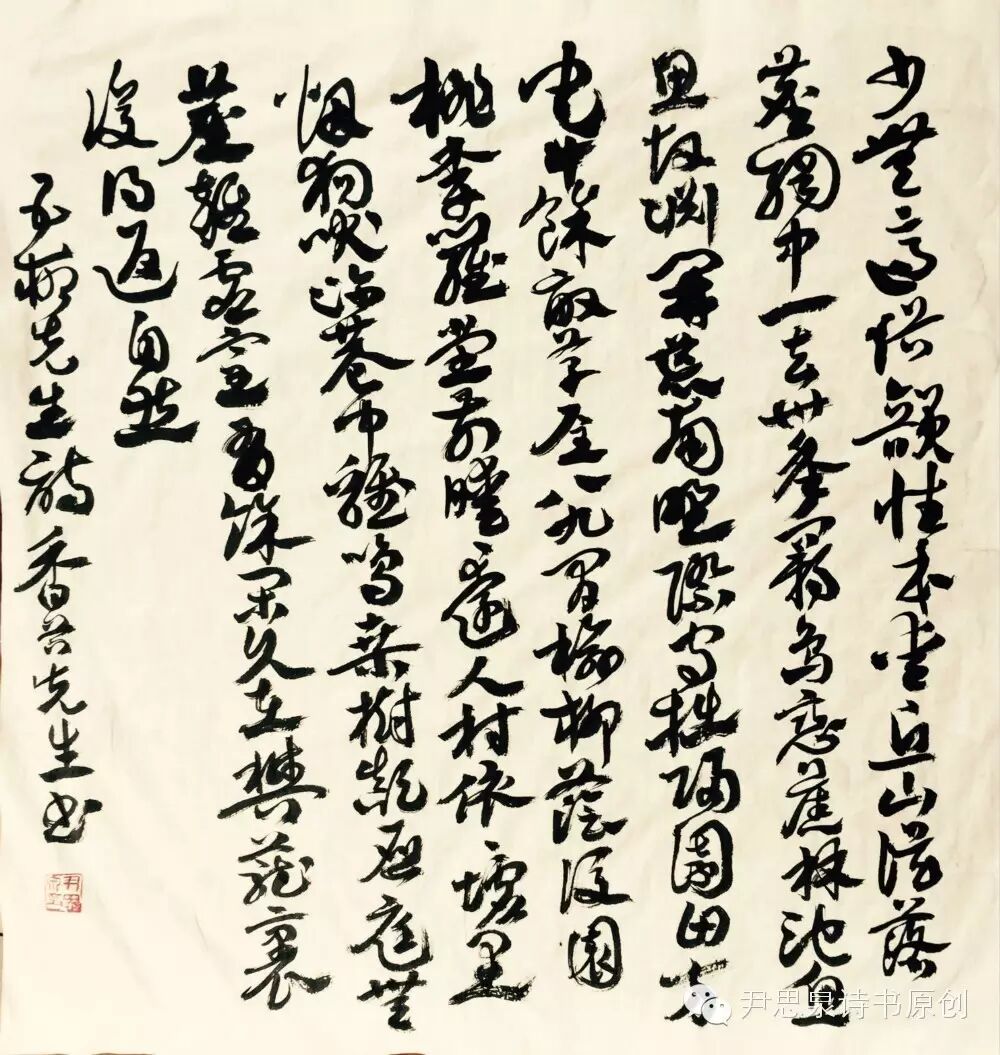 少無適俗韻性本愛丘山誤落
塵網中一去卅年羈鳥戀舊林池魚
思故淵開荒南野際守拙歸園田方
宅十餘畝草屋八九間榆柳蔭後園
桃李羅堂前曖曖遠人村依依墟里
煙狗吠深巷中雞鳴桑樹顛戶庭無
塵雜虛室有餘閒久在樊籠裏
復得返自然
五柳先生詩香谷先生書
尹思泉诗书原创